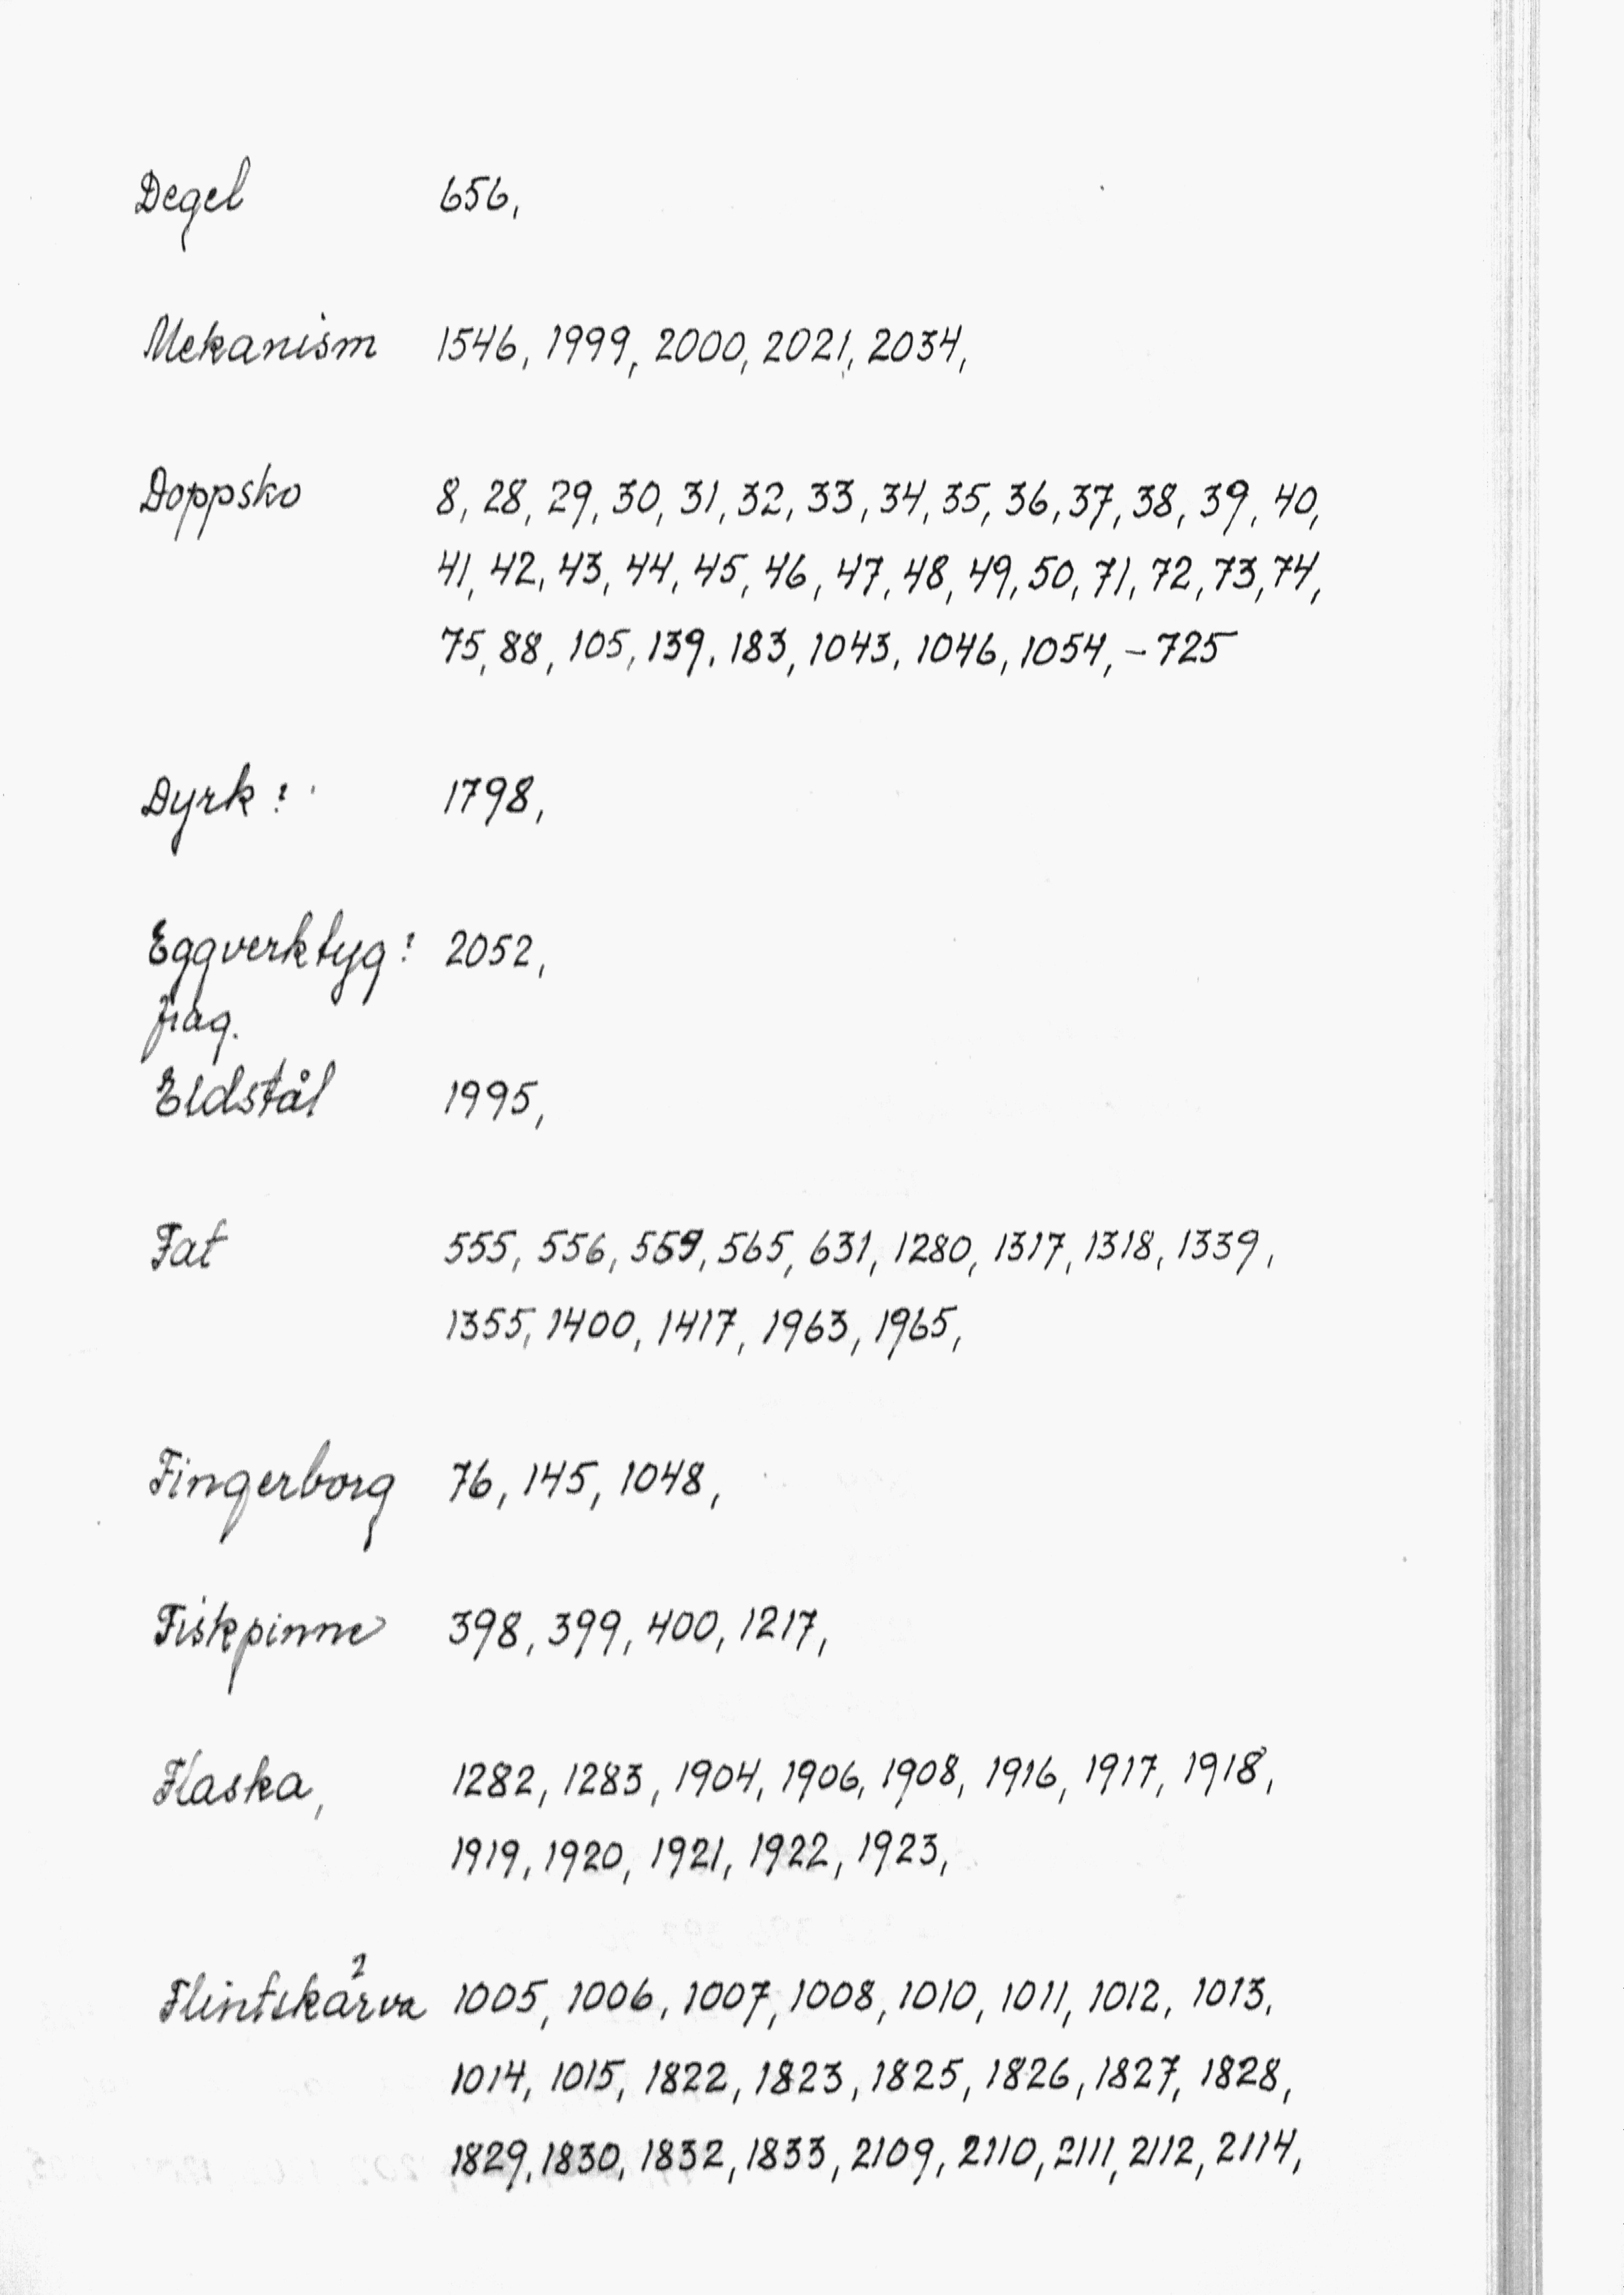 Degel 656,
Mekanism 1546, 1999, 2000, 2021, 2034,
Doppsko 8, 28, 29, 30, 31, 32, 33, 34, 35, 36, 37, 38, 39, 40,
41, 42, 43, 44, 45, 46, 47, 48, 49, 50, 71, 72, 73, 74,
75, 88, 105, 139, 183, 1043, 1046, 1054, - 725
Dyrk? 1798,
Eggverktyg? 2052,
frag.
Eldstål 1995,
Fat 555, 556, 559, 565, 631, 1280, 1317, 1318, 1339,
1355, 1400, 1417, 1963, 1965,
Fingerborg 76, 145, 1048,
Fiskpinne 398, 399, 400, 1217,
Flaska, 1282, 1283, 1904, 1906, 1908, 1916, 1917, 1918,
1919, 1920, 1921, 1922, 1923,
Flintskärva 1005, 1006, 1007, 1008, 1010, 1011, 1012, 1013,
1014, 1015, 1822, 1823, 1825, 1826, 1827, 1828,
1829, 1830, 1832, 1833, 2109, 2110, 2111, 2112, 2114,